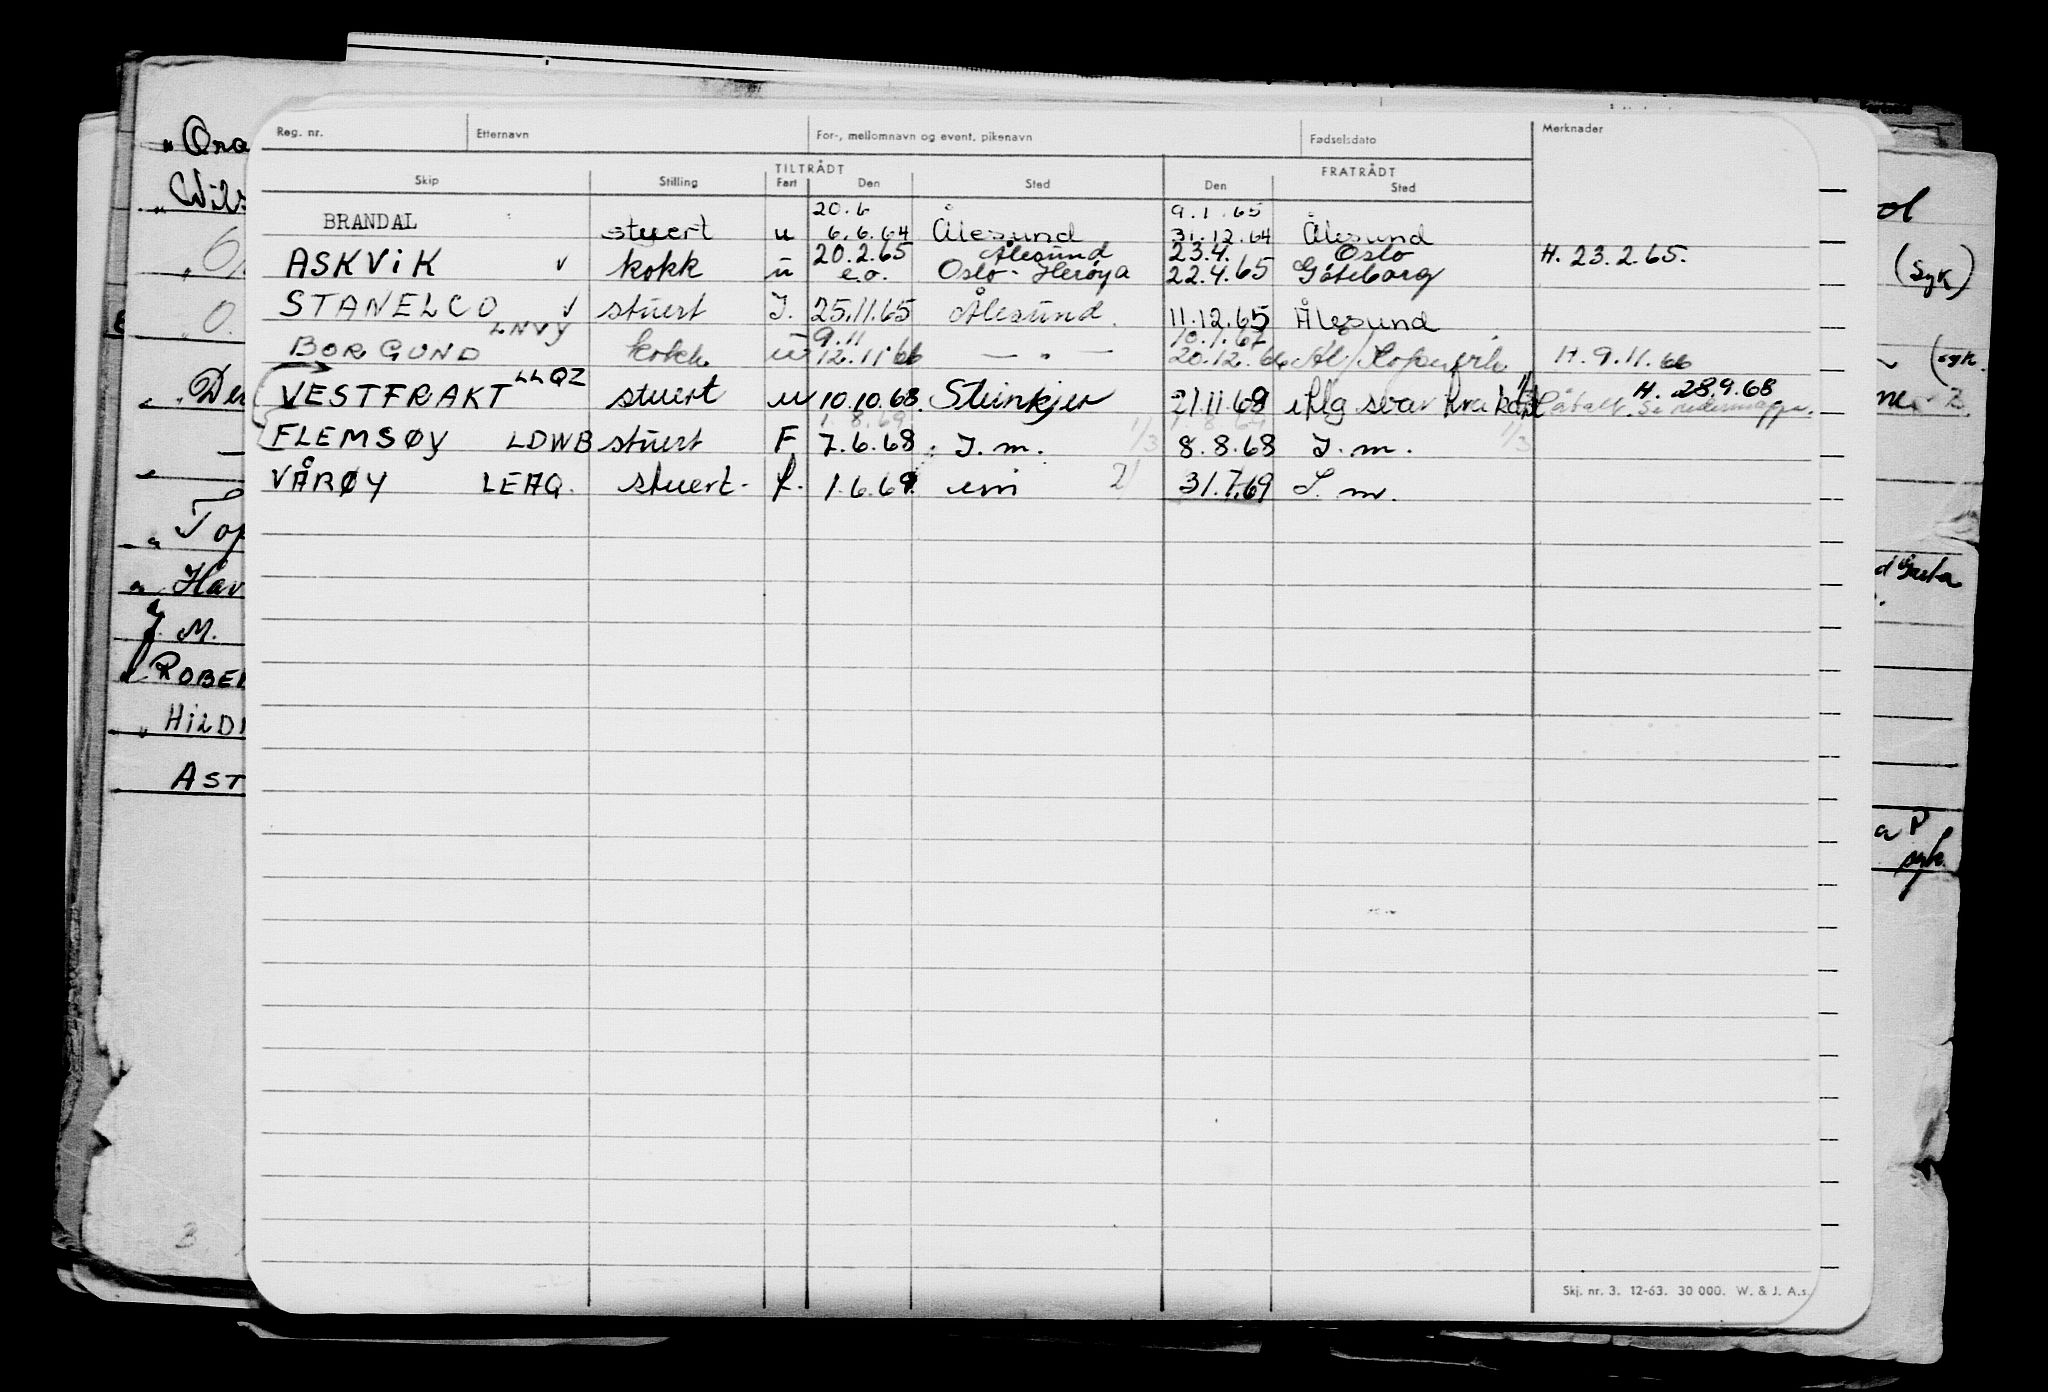 Reg. nr. Etternavn For-, mellomnavn og event. pikenavn Fødselsdato Merknader
TILTRÅDT FRATRÅDT
Skip Stilling Fart Den Sted Den Sted
20.6 9.1.65
BRANDAL stuert u 6.6.64 Ålesund 31.12.64 Ålesund
20.2.65 Ålesund 23.4. Oslo
ASKVIK v kokk u e.o. Oslo-Herøya 22.4.65 Göteborg H. 23.2.65.
STANELCO v stuert I. 25.11.65 Ålesund. 11.12.65 Ålesund
LNVY 9.11 10.1.67
BORGUND kokk u 12.11.66 — " — 20.12.66 H. 9.11.66
VESTFRAKT LLQZ stuert u 10.10.68. Steinkjer 21.11.68 H. 28.9.68
1.8.69
FLEMSØY LDWB stuert F 7.6.68 I.m. 1/3 8.8.68 I.m. 1/3
VÅRØY LEAQ. stuert- f. 1.6.69 um 2/ 31.7.69 I.m.
Skj. nr. 3. 12-63. 30 000. W. & J. A.s.
" Ora
" Wils
ol
(Syk)
" O.
(syk.
Der
Top
Hav
J. M.
ROBE
" HILD
AST
syk.